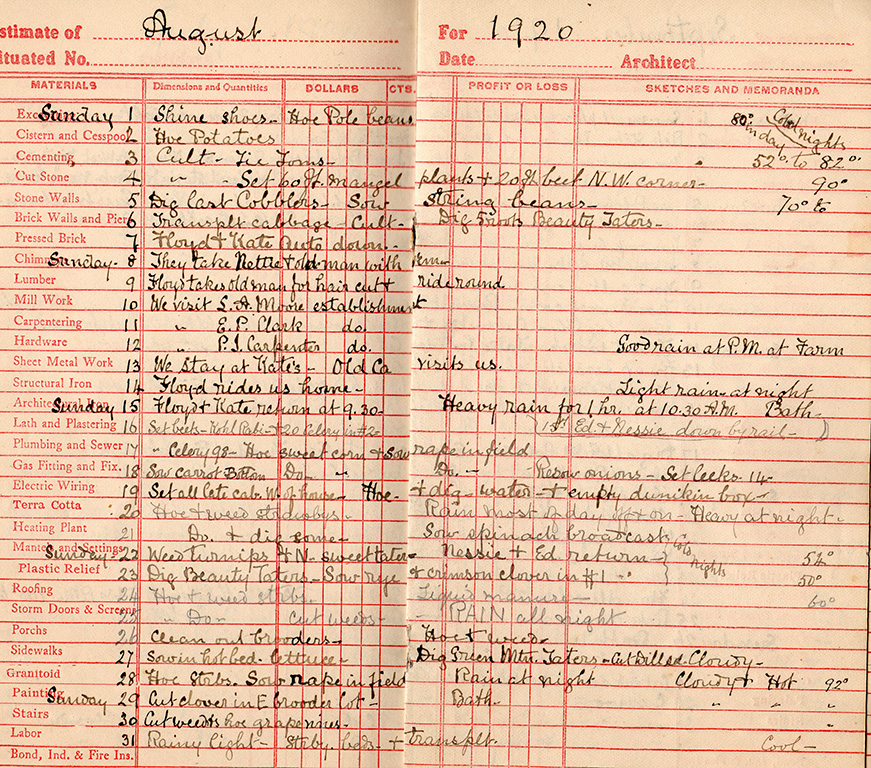 Estimate of August For 1920
Situated No. Date Architect
MATERIALS Dimensions and Quantities DOLLARS CTS. PROFIT OR LOSS SKETCHES AND MEMORANDA
Sunday 1 Shine shoes - Hoe Pole beans 80° Sunday Cool nights
Cistern and Cesspool 2 Hoe Potatoes
Cementing 3 Cult - Tie Toms - 52° to 82°
Cut Stone 4 " " - Set 60 ft. mangel plants + 20 ft. beet N.W. corner - 90°
Stone Walls 5 Dig last Cobblers - Sow string beans - 70° to
Brick Walls and Pier 6 Transplt cabbage - Cult - Dig 5 roots Beauty Taters -
Pressed Brick 7 Floyd + Kate Auto down -
Sunday - 8 They take Nettie + old man with em -
Lumber 9 Floyd takes old man for hair cut + ride round
Mill Work 10 We visit L.A. Moore establishment
Carpentering 11 " E.P. Clark do.
Hardware 12 " P.I. Carpenter do. Good rain at P.M. at Farm
Sheet Metal Work 13 We stay at Kate's - Old Ca visits us.
Structural Iron 14 Floyd rides us home - Light rain - at night
Architectural Iron Sunday 15 Floyd + Kate return at 9.30 - Heavy rain for 1 hr. at 10.30 A.M. Bath -
Lath and Plastering 16 Set beets - Kohl Rabi - + 20 Celery in #2 - (15th Ed + Nessie down by rail -)
Plumbing and Sewer 17 " Celery 98 - Hoe sweet corn + sow rape in field
Gas Fitting and Fix. 18 Sow carrot Bottom Do. " Do. - - Resow onions - Set leeks. 14 -
Electric Wiring 19 Set all late cab. W. of house - Hoe - + dig - water - + empty dunikin box -
Terra Cotta 20 Hoe + weed strawbys - Rain most of day off + on - Heavy at night -
Heating Plant 21 Do. + dig some - Sow spinach broadcast
Mantels and Settings Sunday - 22 Weed turnips + N. sweet tater - Nessie + Ed return - Cold nights 52°
Plastic Relief 23 Dig Beauty Taters - Sow rye + crimson clover in #1 - 50°
Roofing 24 Hoe + weed strbs. Liquid manure - 60°
Storm Doors & Screens 25 " Do - Cut weeds - - RAIN all night
Porchs 26 Clean out brooders - Hoe + weed -
Sidewalks 27 Sow in hot bed - lettuce - Dig Green Mtn. Taters - Cut Dill sd. Cloudy -
Granitoid 28 Hoe Strbs. Sow rape in field Rain at night Cloudy + Hot 92°
Painting Sunday 29 Cut clover in E brooder lot - Bath - " " "
Stairs 30 Cut weeds + hoe grape vines - "
Labor 31 Rainy light - Strby. beds - + transplt. Cool -
Bond, Ind. & Fire Ins.